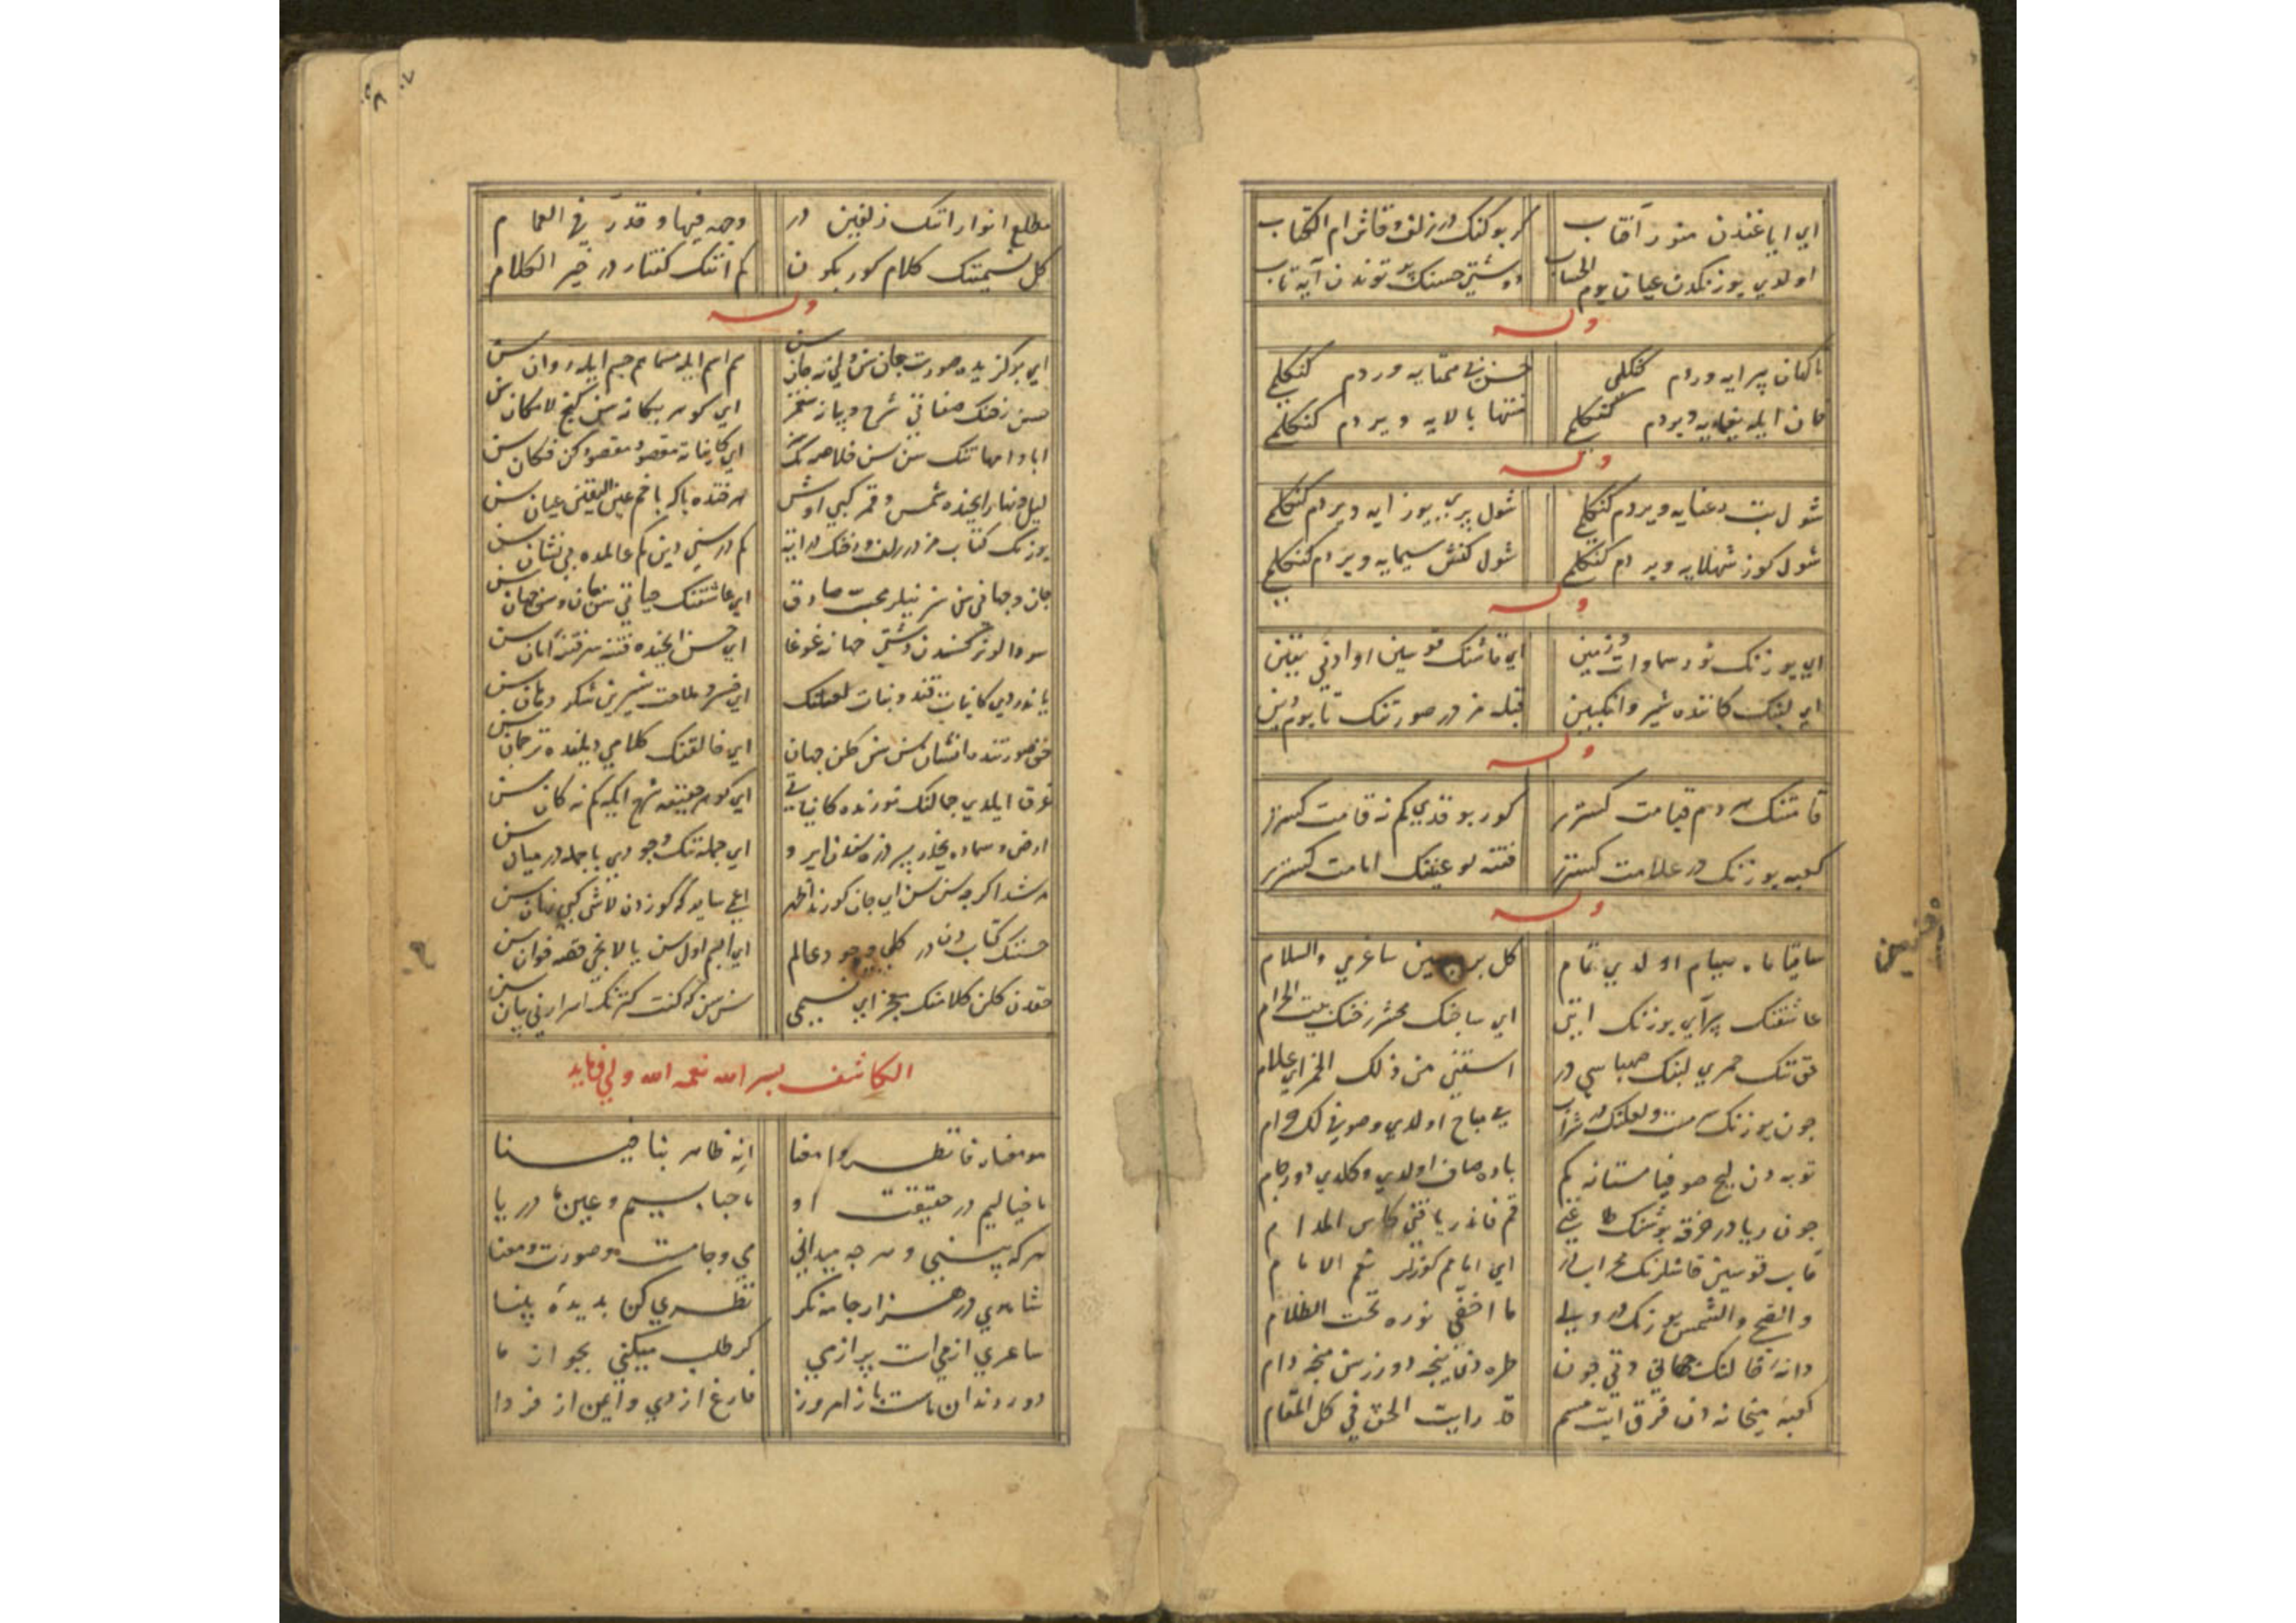 ای ایاغندن منور آفتاب کر بو کنک در زلف و قاش ام الکتاب
اولدی یوزنکدن عیان یوم الحساب دوشتی حسنک توندن آیه تاب
وله
ناکهان پیرایه ویردم کنکلمی حسن بی همتایه ویردم کنکلمی
جان ایله یغمایه ویردم کنکلمی منتها بالایه ویردم کنکلمی
وله
شول بت رعنایه ویردم کنکلمی شول پری یوز آیه ویردم کنکلمی
شول کوز شهلایه ویردم کنکلمی شول کنش سیمایه ویردم کنکلمی
وله
ای یوزنک نور سماوات و زمین ای قاشنک قوسین او ادنی یقین
ای لبنک کاننده شیر و انکبین قبله مز در صورتنک تا یوم دین
وله
قامتنک هر دم قیامت کستریر کور بو قدی کم نه قامت کستریر
کعبه یوزنک در علامت کستریر فتنه لو عینک امامت کستریر
وله
ساقیا ماه صیام اولدی تمام کل بر سین ساغری والسلام
عاشقنک پیرآیی یوزنک ایتی ای ساچنک محشر رخنک بیت الحرام
حق تنک خمری لبنک صهباسی در اسقنی من ذلک الخمر ای غلام
چون یوزنک مست و لعلنک در شراب می مباح اولدی و صوفی لک حرام
توبه دن کج صوفیا مستانه کم باده صاف اولدی و کلدی دور جام
چون ریا در خرقه پوشنک طاعتی قم فاذر یا فتی کاس المدام
قاب قوسین قاشلرنک محراب در ای امامم کوزلر نعم الامام
والضحی والشمس یوزنک در ولی ما اختفی نوره تحت الظلام
دانهٔ خالنک جمالی دتی چون طره دن ینجه دوزرسن ینجه دام
کعبه میخانه دن فرق ایتمسم قد رایت الحق فی کل المقام
مطلع انوار اتنک زلفین در وجه فیها و قدر فی الغمام
کل نسیمتنک کلام کور بکون کم اتنک کفتار در خیر الکلام
وله
ای بو کزیده صورت جان سن ولی نه جان سن هم اسم ایله مسما هم جسم ایله روان سن
حسن رخنک صفاتی شرح و بیانه صغمز ای کوهر یکانه سن کنج لامکان سن
ابا و امهاتنک سن سن خلاصه سی ای کایناته مقصود مقصود کن فکان سن
لیل و نهار ایچنده شمس و قمر کبی اوش هر قنده باکر باخم عین الیقین عیان سن
یوزنک کتاب مز در زلف و رخنک در آیه کم در سنی دین کم عالمده بی نشان سن
جان و جهانی سن سز نیلر محب صادق ای عاشقنک حیاتی سن جان و سن جهان سن
سودالو نرکسندن دوشتی جهانه غوغا ای حسن ایچنده فتنه سر فتنهٔ امان سن
یاندردی کایناتی قند و نبات لعلنک ای خسرو ملاحت شیرین شکر دهان سن
حق صورتنده انسان سن سن کلن جهان ای خالقنک کلامی دیلنده ترجمان سن
غرق ایلدی جمالنک نورنده کایناتی ای کوهر حقیقه شرح ایله کم نه کان سن
ارض و سماده یخدر بیر ذره سندن ایرو ای جمله نک وجودی با جمله در میان سن
هر شدا کرچه سن سن ای جان کورند اظهر اعمی سایر که کوزدن لاشی کبی نهان سن
حسننک کتاب دن در کلی وجود عالم ای ابجم اول سن یالانچی قصه خوان سن
حقدن کلن کلامنک معجز ای نسیمی سن سن که کنت کنزنک اسرارنی بیان سن
الکاشف بسر الله نعمة الله ولی فرماید
هو معنا فانظروا معنا انه ظاهر بنا فینا
ما خیالیم در حقیقت او ما حبابیم و عین ما دریا
هر که بینی و هر چه میدانی می و جامست و صورت و معنا
شاهدی در هزار جامه نکر نظری کن بدیدهٔ بینا
ساغری از می است پر از می کر طلب میکنی بجو از ما
دور رندان ماست باز امروز فارغ از دی و ایمن از فردا